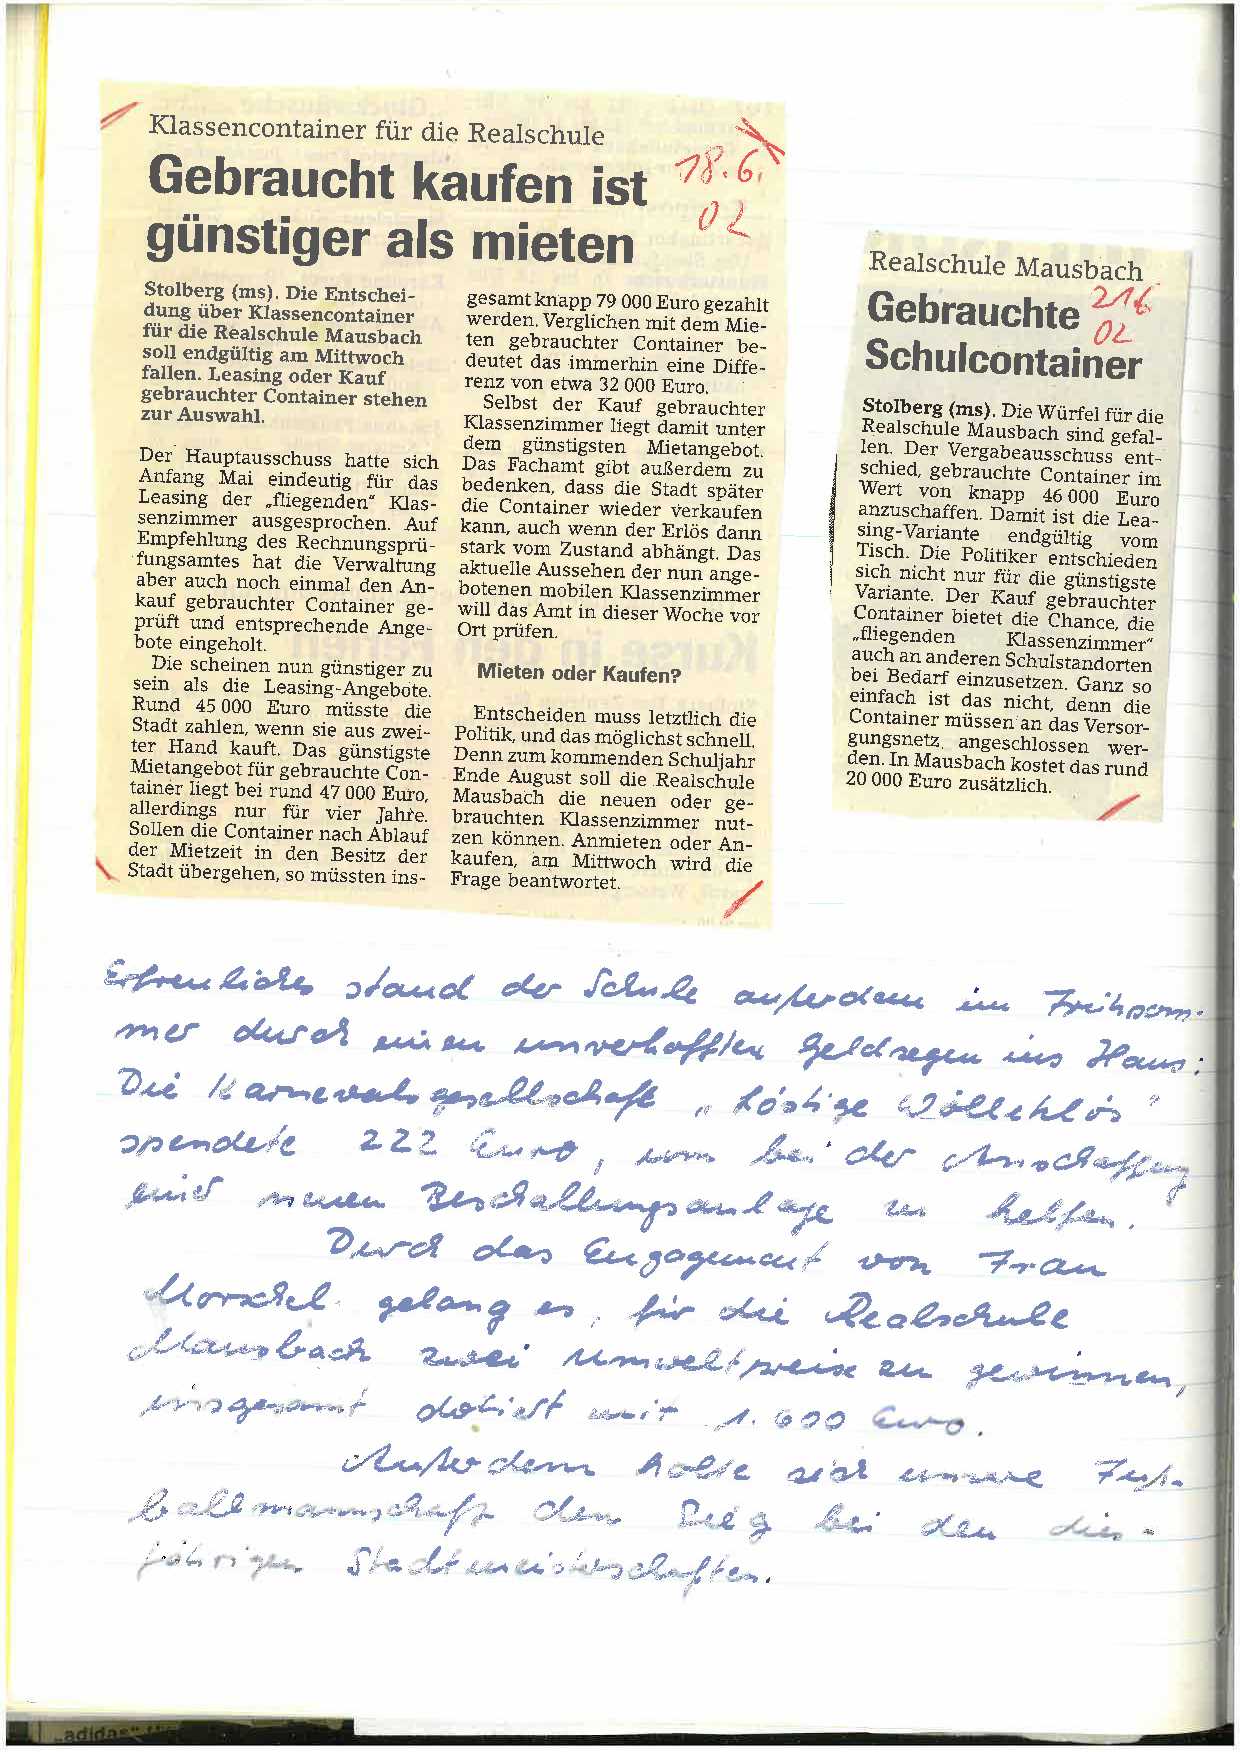 Klassencontainer für die Realschule
Gebraucht kaufen ist
günstiger als mieten
18.6.
02
Stolberg (ms). Die Entschei-
dung über Klassencontainer
für die Realschule Mausbach
soll endgültig am Mittwoch
fallen. Leasing oder Kauf
gebrauchter Container stehen
zur Auswahl.
Der Hauptausschuss hatte sich
Anfang Mai eindeutig für das
Leasing der „fliegenden“ Klas-
senzimmer ausgesprochen. Auf
Empfehlung des Rechnungsprü-
fungsamtes hat die Verwaltung
aber auch noch einmal den An-
kauf gebrauchter Container ge-
prüft und entsprechende Ange-
bote eingeholt.
Die scheinen nun günstiger zu
sein als die Leasing-Angebote.
Rund 45 000 Euro müsste die
Stadt zahlen, wenn sie aus zwei-
ter Hand kauft. Das günstigste
Mietangebot für gebrauchte Con-
tainer liegt bei rund 47 000 Euro,
allerdings nur für vier Jahre.
Sollen die Container nach Ablauf
der Mietzeit in den Besitz der
Stadt übergehen, so müssten ins-
gesamt knapp 79 000 Euro gezahlt
werden. Verglichen mit dem Mie-
ten gebrauchter Container be-
deutet das immerhin eine Diffe-
renz von etwa 32 000 Euro.
Selbst der Kauf gebrauchter
Klassenzimmer liegt damit unter
dem günstigsten Mietangebot.
Das Fachamt gibt außerdem zu
bedenken, dass die Stadt später
die Container wieder verkaufen
kann, auch wenn der Erlös dann
stark vom Zustand abhängt. Das
aktuelle Aussehen der nun ange-
botenen mobilen Klassenzimmer
will das Amt in dieser Woche vor
Ort prüfen.
Mieten oder Kaufen?
Entscheiden muss letztlich die
Politik, und das möglichst schnell.
Denn zum kommenden Schuljahr
Ende August soll die Realschule
Mausbach die neuen oder ge-
brauchten Klassenzimmer nut-
zen können. Anmieten oder An-
kaufen, am Mittwoch wird die
Frage beantwortet.
Realschule Mausbach
Gebrauchte
Schulcontainer
21.6
02
Stolberg (ms). Die Würfel für die
Realschule Mausbach sind gefal-
len. Der Vergabeausschuss ent-
schied, gebrauchte Container im
Wert von knapp 46 000 Euro
anzuschaffen. Damit ist die Lea-
sing-Variante endgültig vom
Tisch. Die Politiker entschieden
sich nicht nur für die günstigste
Variante. Der Kauf gebrauchter
Container bietet die Chance, die
„fliegenden Klassenzimmer“
auch an anderen Schulstandorten
bei Bedarf einzusetzen. Ganz so
einfach ist das nicht, denn die
Container müssen an das Versor-
gungsnetz angeschlossen wer-
den. In Mausbach kostet das rund
20 000 Euro zusätzlich.
Erfreuliches stand der Schule außerdem im Frühsom-
mer durch einen unverhofften Geldregen ins Haus:
Die Karnevalsgesellschaft „Löstige Wölleklös“
spendete 222 Euro, um bei der Anschaffung
einer neuen Beschallungsanlage zu helfen.
Durch das Engagement von Frau
Morschel gelang es, für die Realschule
Mausbach zwei Umweltpreise zu gewinnen,
insgesamt dotiert mit 1.600 Euro.
Außerdem holte sich unsere Fuß-
ballmannschaft den Sieg bei den dies-
jährigen Stadtmeisterschaften.
„adidas“